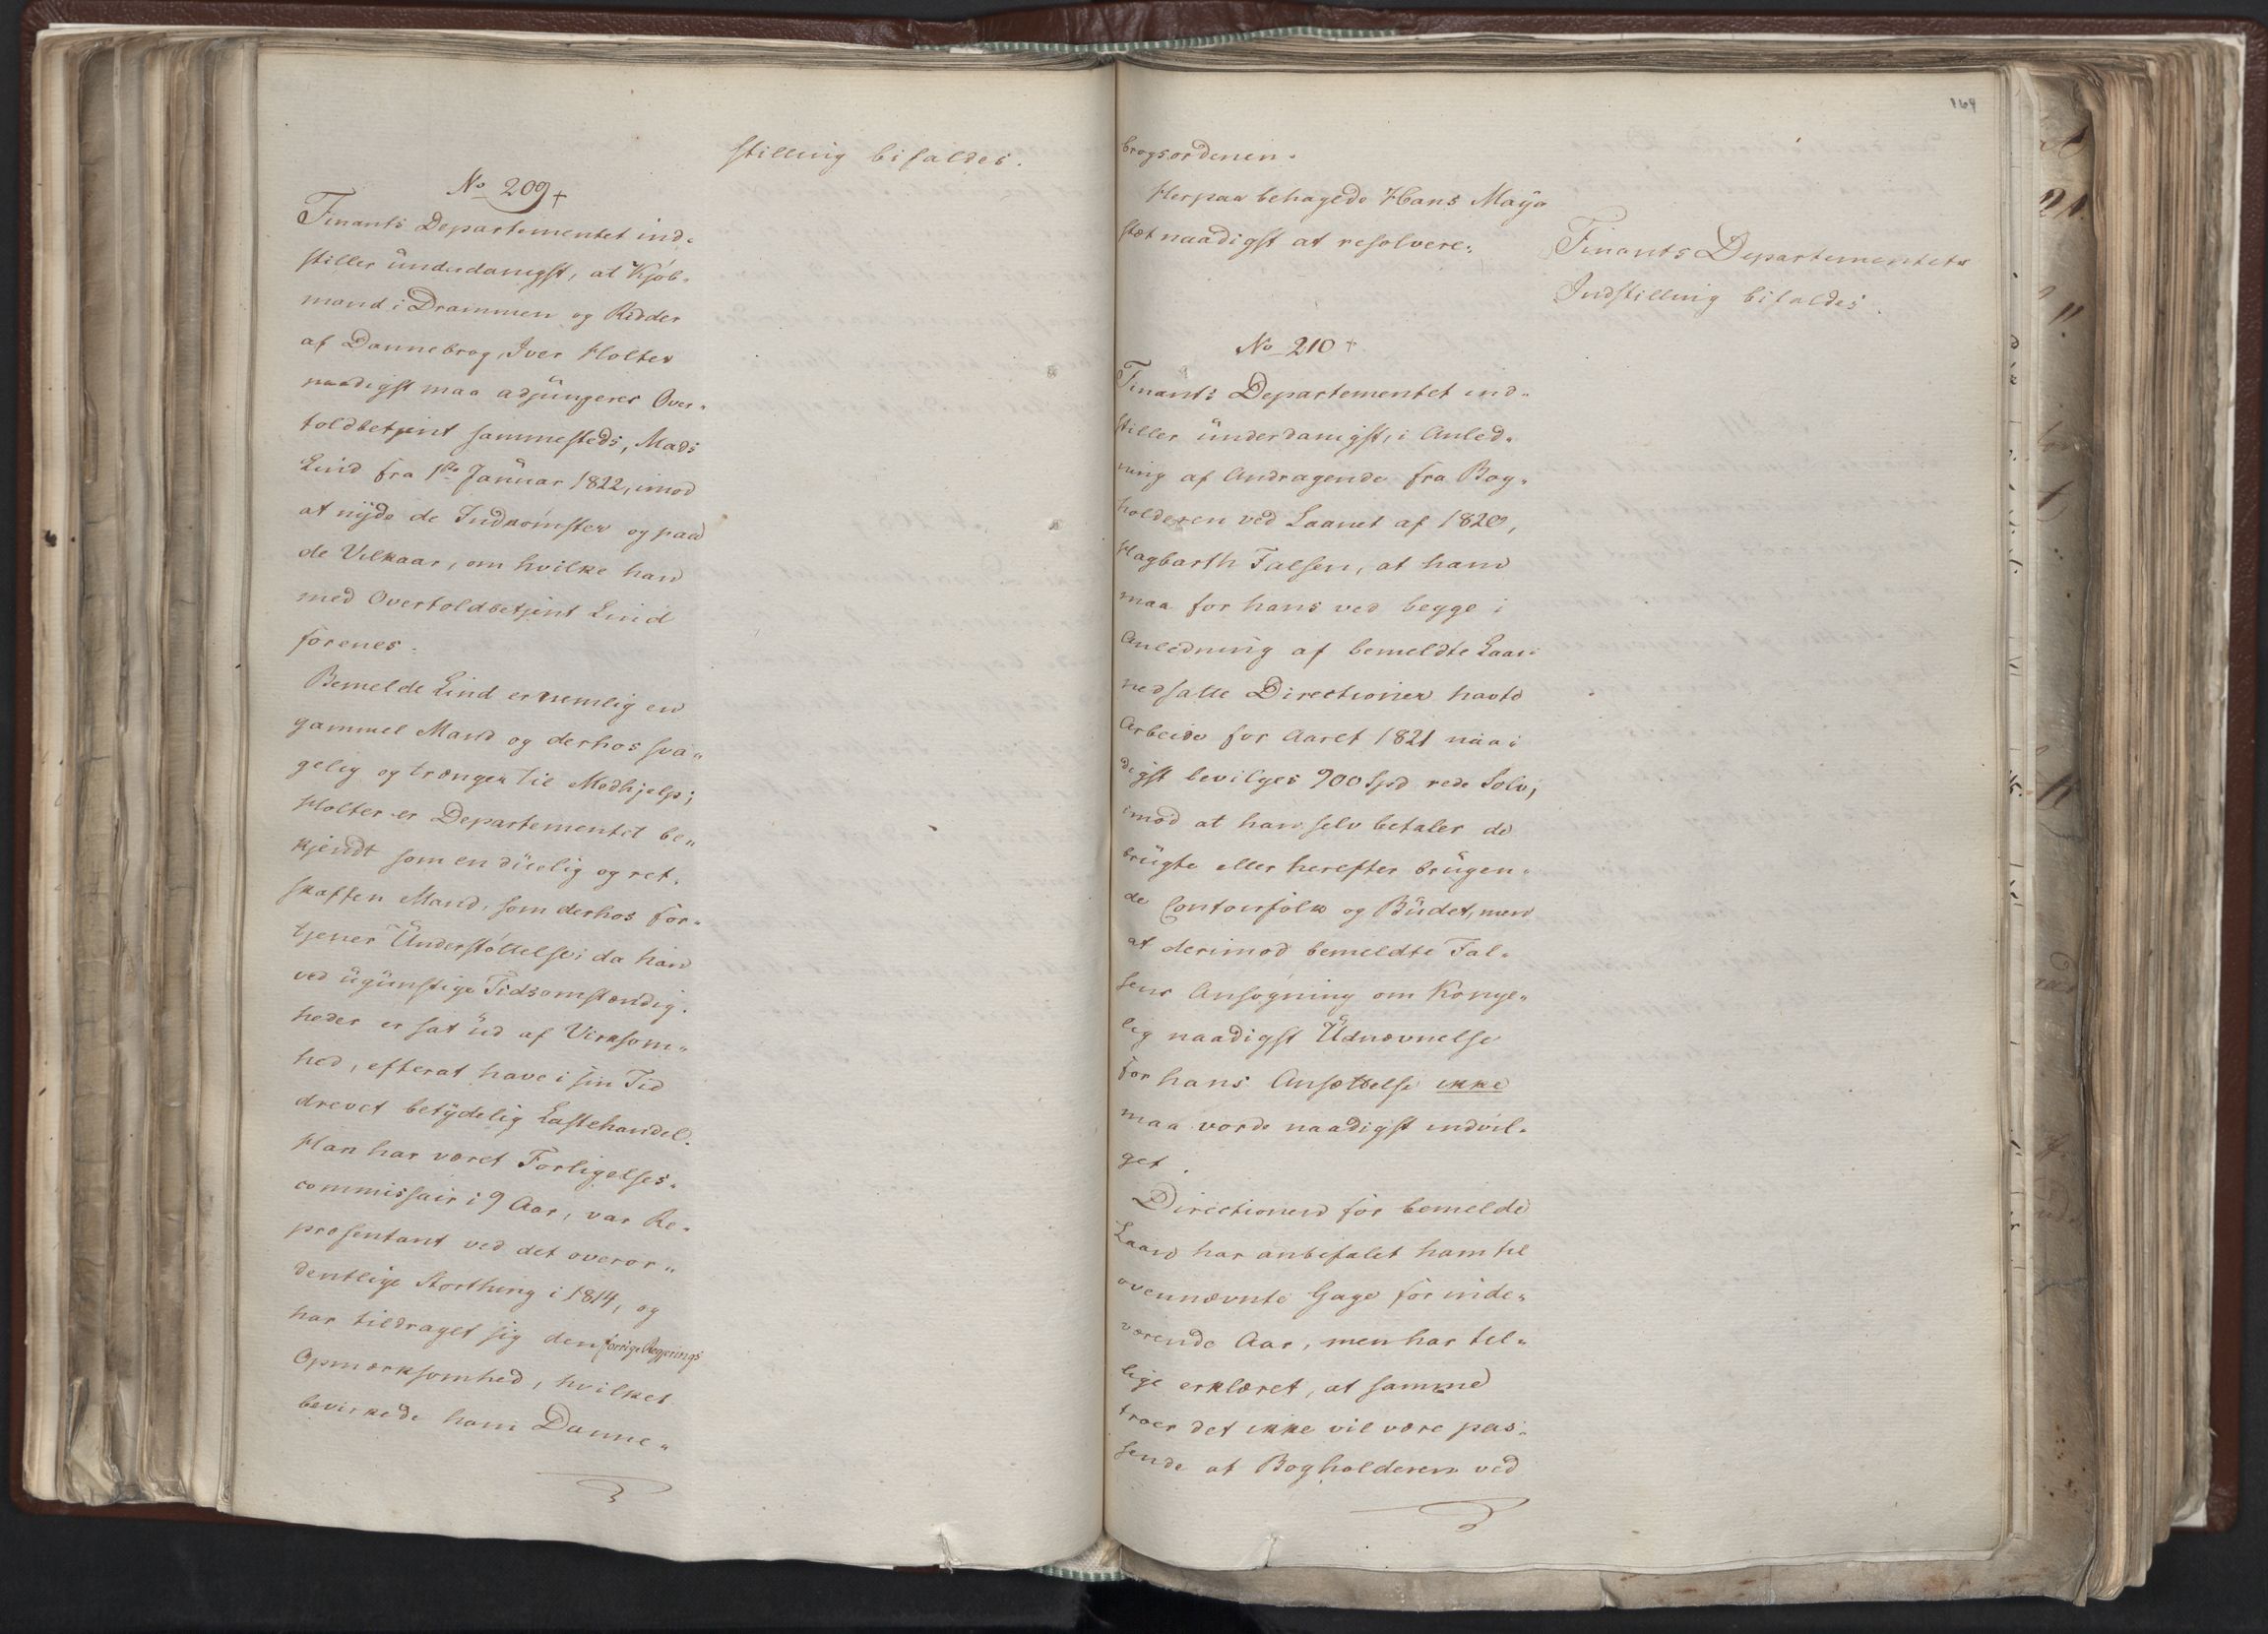 stilling bifaldes.
No 209 +
Finants Departementet ind-
stiller underdanigst, at Kjøb-
mand i Drammen og Ridder
af Dannebrog, Iver Holter
naadigst maa adjungeres Over-
toldbetjent sammesteds, Mads
Lind fra 1ste Januar 1822, imod
at nyde de Indkomster og paa
de Vilkaar, om hvilke han
med Overtoldbetjent Lind
forenes.
Bemelde Lind er nemlig en
gammel Mand og derhos sva-
gelig og trænger til Medhjelp;
Holter er Departementet be-
kjendt som en duelig og ret-
skaffen Mand, som derhos for-
tjener Understøttelse, da han
ved ugunstige Tidsomstændig-
heder er sat ud af Virksom-
hed, efterat have i sin Tid
drevet betydelig Lastehandel.
Han har været Forligelses-
commissair i 9 Aar, var Re-
præsentant ved det overor-
dentlige Storthing i 1814, og
har tildraget sig den forrige Regjerings
Opmærksomhed, hvilket
bevirkede ham Danne-
164
brogsordenen.
Herpaa behagede Hans Maje-
stæt naadigst at resolvere:
Finants Departementets
Indstilling bifaldes.
No 210 +
Finants Departementet ind-
stiller underdanigst, i Anled-
ning af Andragende fra Bog-
holderen ved Laanet af 1820,
Hagbarth Falsen, at ham
maa for hans ved begge i
Anledning af bemeldte Laan
nedsatte Directioner havte
Arbeide for Aaret 1821 naa-
digst bevilges 900 Spd rede Sølv,
imod at han selv betaler de
brugte eller herefter brugen-
de Contoirfolk og Budet, men
at derimod bemeldte Fal-
sens Ansøgning om Konge-
lig naadigst Udnævnelse
for hans Ansættelse ikke
maa vorde naadigst indvil-
get.
Directionen for bemelde
Laan har anbefalet ham til
ovennævnte Gage for inde-
værende Aar, men har til-
lige erklæret, at samme
troer det ikke vil være pas-
sende at Bogholderen ved